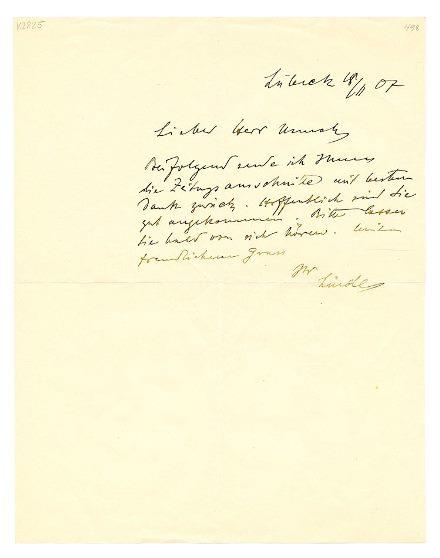 K2825 498
Lübeck 18/II 07
Lieber Herr Munch,
Beifolgend sende ich Ihnen
die Zeitungsausschnitte mit bestem
Dank zurück. Hoffentlich sind Sie
gut angekommen. Bitte lassen
Sie bald von sich hören. Meinen
freundlichen Gruss
Ihr
Linde